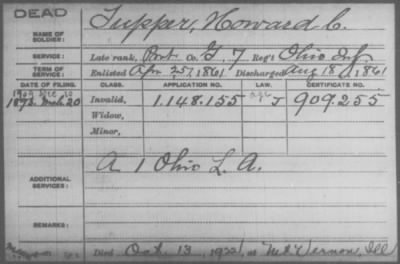 DEAD
NAME OF SOLDIER: Tupper, Howard C.
SERVICE: Late rank, Co. G, 7 Reg't Ohio Inf
TERM OF SERVICE: Enlisted Apr 25, 1861 Discharged Aug 18, 1861
DATE OF FILING. CLASS. APPLICATION NO. LAW. CERTIFICATE NO.
1893. Mch. 20 Invalid, 1.148.155 J 909.255
Widow,
Minor,
ADDITIONAL SERVICES: A 1 Ohio L. A.
REMARKS:
Died Oct. 13, 1922, at Mt Vernon, Ill